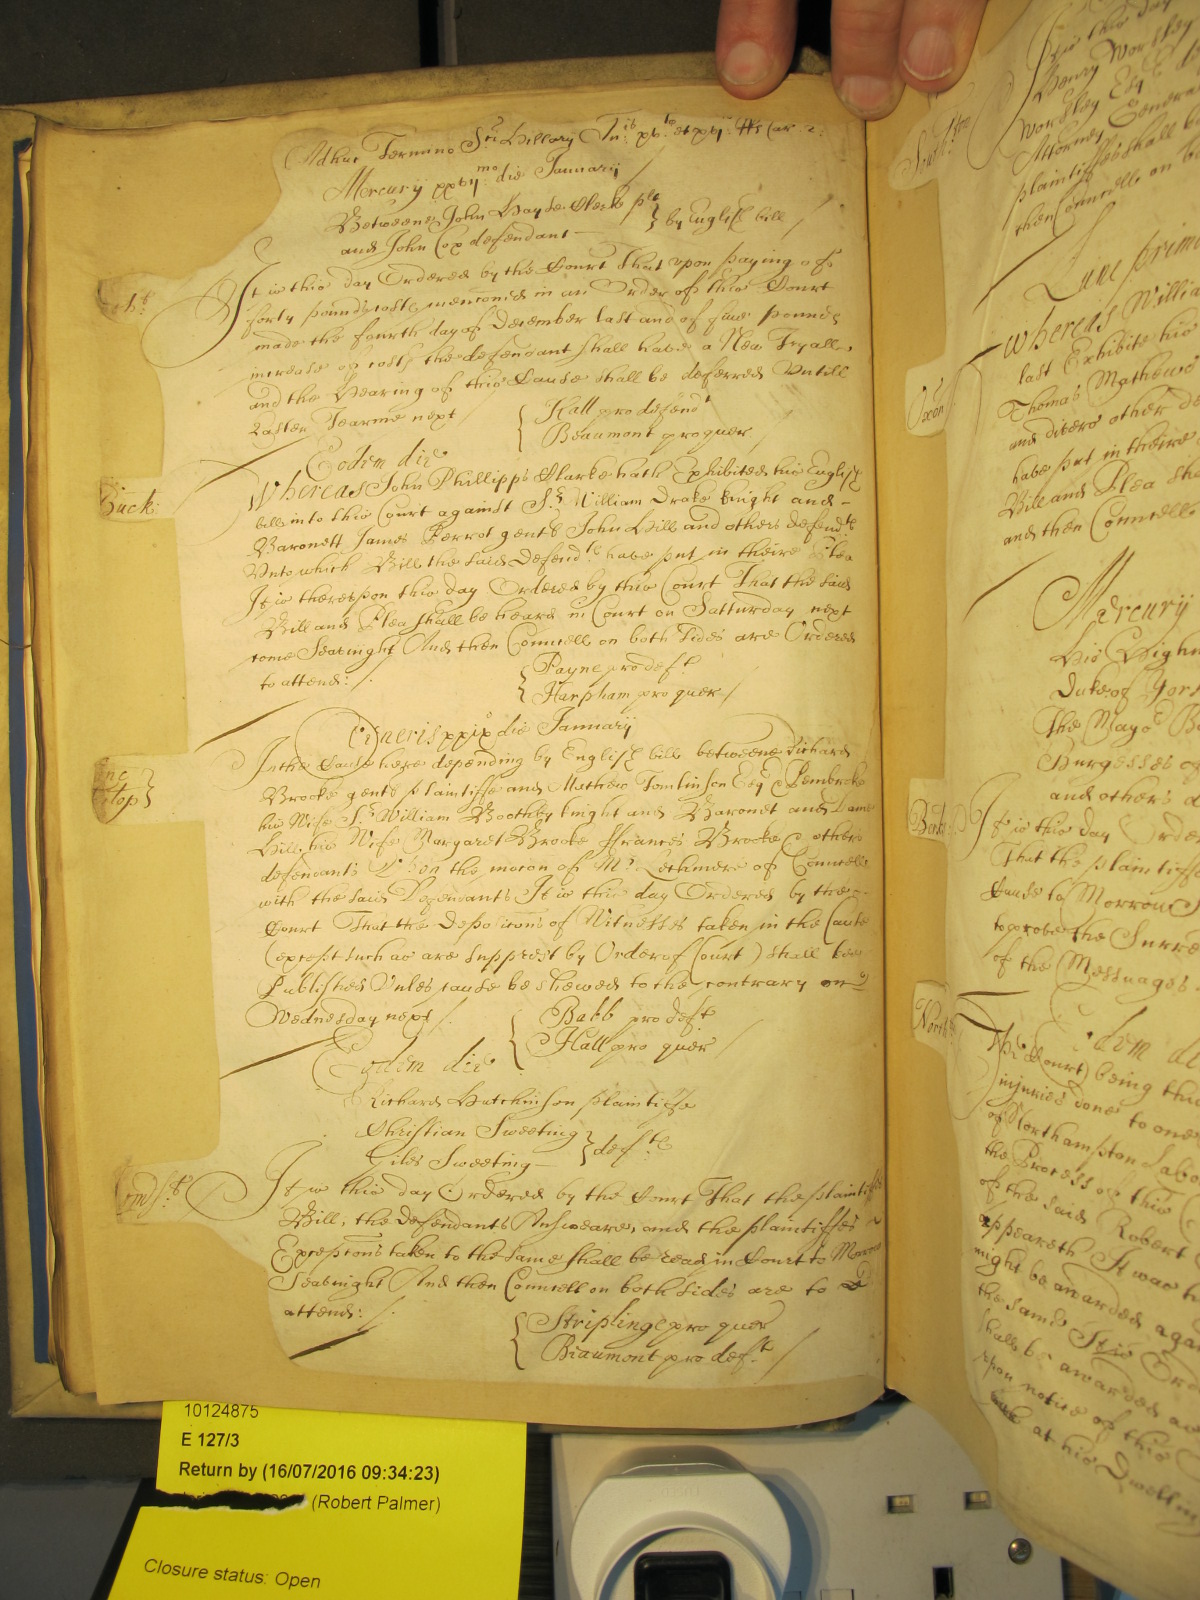 Adhuc Termino Sci Hillary
Mercurij xxvijmo die January
Betweene John Hayde Clerke plt
and John Cox defendant
by English bill
It is this day Ordered by the Court That upon paying of
forty pounds costs menconed in an Order of this Court
made the fourth day of December last and of five pounds
increase of costs the defendant shall have a New Tryall,
and the Hearing of this Cause shall be deferred Untill
Easter Tearme next
Hall pro defendt
Beaumont pro quer
Eodem die
Buck:
Whereas John Phillipps Clarke hath Exhibited his English
bill into this Court against Sr William Drake knight and
Baronett James Perrot gent & John Hill and others defendts
Unto which Bill the said Defendts have put in theire Plea
It is thereupon this day Ordered by this Court That the said
Bill and Plea shall be heard in Court on Satturday next
come Seavnight And then Councell on both sides are Ordered
to attend:
Payne pro deft
Harpham pro quer
Veneris xxix die January
In the Cause here depending by English bill betweene Richard
Brooke gent plaintiffe and Mathew Tomlinson Esqr Pembroke
his Wife Sr William Boothby knight and Baronet and Dame
Hill his Wife Margaret Brooke Frances Brooke & others
defendants Upon the mocon of Mr Lethmere of Councell
with the said Defendants It is this day Ordered by the
Court That the Deposicons of Witnesses taken in the Cause
(except such as are supprest by Order of Court) shall bee
Published Unles cause be shewed to the contrary on
Wednesday next
Babb pro deft
Hall pro quer
Eodem die
Richard Hutchinson plaintiffe
Christian Sweeting
Giles Sweeting
defts
It is this day Ordered by the Court That the plaintiffs
Bill, the defendants Answeare, and the plaintiffes
Excepcons taken to the same shall be read in Court to Morrow
Seavnight And then Councell on both sides are to
attend:
Striplinge pro quer
Beaumont pro deft
Henry Worsley
Worsley Esqr
Attorney Generall
plaintiffes shall
then Councells on
Oxon
Whereas William
last Exhibite his
Thomas Mathewes
and divers other de
have put in theire
Bill and Plea sha
and then Councells
Mercurij
His Highn
Duke of York
The Mayor B
Burgesses o
and others d
It is this day Orde
That the plaintiffs
Cause to Morrow S
to probe the Surre
of the Messuages
North
Eodem di
This Court being th
injuries done to one
of Northampton Labo
the Process of this C
of the said Robert
appeareth It was
might be awarded agai
the same It is Ord
shall be awarded ag
upon notice of this
at his Dwelling
10124875
E 127/3
Return by (16/07/2016 09:34:23)
(Robert Palmer)
Closure status: Open